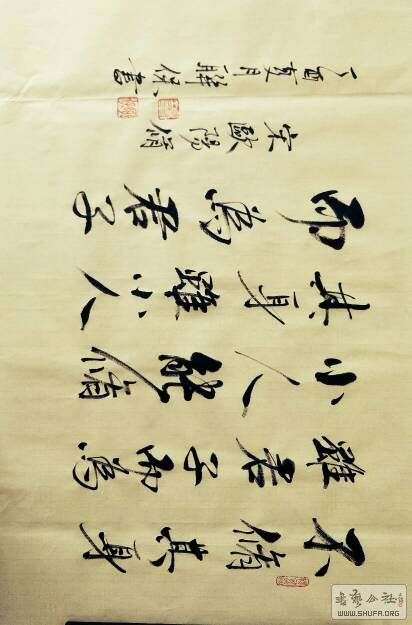 不脩其身
雖君子而為
小人能脩
其身雖小人
而為君子
宋歐陽脩
丁酉夏月聯書
書藝公社
WWW.SHUFA.ORG